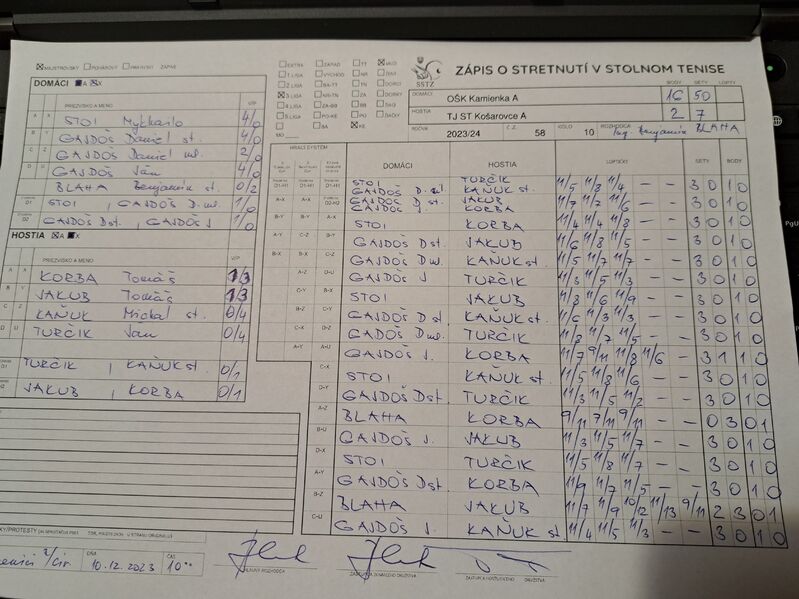 MAJSTROVSKÝ POHÁROVÝ PRIPRAVNÝ ZÁPAS
EXTRA ZÁPAD TT MUŽI
1. LIGA VÝCHOD NR ŽENY
2. LIGA BA-TT TN DORCI
3. LIGA NR-TN ZA DORKY
4. LIGA ZA-BB BB ŽIACI
5. LIGA PO-KE PO ŽIAČKY
BA KE
SSTZ
ZÁPIS O STRETNUTÍ V STOLNOM TENISE
BODY SETY LOPTY
DOMÁCI OŠK Kamienka A 16 50
HOSTIA TJ ST Košarovce A 2 7
ROČNÍK 2023/24 Č.Z. 58 KOLO 10 ROZHODCA Ing. Benjamín BLAHA
DOMÁCI A X
PRIEZVISKO A MENO V/P
A X STOI Mykhailo 4/0
B Y GAJDOŠ Daniel st. 4/0
C Z GAJDOŠ Daniel ml. 2/0
D U GAJDOŠ Ján 4/0
BLAHA Benjamín st. 0/2
D1 STOI , GAJDOŠ D.ml. 1/0
D2 GAJDOŠ Dst. , GAJDOŠ J. 1/0
HOSTIA A X
PRIEZVISKO A MENO V/P
A X KORBA Tomáš 1/3
B Y JAKUB Tomáš 1/3
C Z KAŇUK Michal st. 0/4
D U TURČIK Ján 0/4
D1 TURČIK , KAŇUK st. 0/1
D2 JAKUB , KORBA 0/1
HRACÍ SYSTÉM
DOMÁCI HOSTIA LOPTIČKY SETY BODY
STOI GAJDOŠ D. ml. TURČIK KAŇUK st. 11/5 11/8 11/4 – – 3 0 1 0
GAJDOŠ D st. GAJDOŠ J. JAKUB KORBA 11/7 11/7 11/6 – – 3 0 1 0
STOI KORBA 11/4 11/4 11/8 – – 3 0 1 0
GAJDOŠ Dst. JAKUB 11/6 11/8 11/5 – – 3 0 1 0
GAJDOŠ Dml. KAŇUK st. 11/5 11/7 11/7 – – 3 0 1 0
GAJDOŠ J TURČIK 11/3 11/5 11/3 – – 3 0 1 0
STOI JAKUB 11/8 11/6 11/9 – – 3 0 1 0
GAJDOŠ Dst KAŇUK st. 11/6 11/3 11/3 – – 3 0 1 0
GADOŠ Dml. TURČIK 11/8 11/7 11/5 – – 3 0 1 0
GAJDOŠ J. KORBA 11/7 9/11 11/8 11/6 – 3 1 1 0
STOI KAŇUK st. 11/5 11/8 11/6 – – 3 0 1 0
GAJDOŠ Dst. TURČIK 11/3 11/5 11/2 – – 3 0 1 0
BLAHA KORBA 9/11 7/11 9/11 – – 0 3 0 1
GAJDOŠ J. JAKUB 11/3 11/5 11/7 – – 3 0 1 0
STOI TURČIK 11/5 11/8 11/7 – – 3 0 1 0
GAJDOŠ Dst. KORBA 11/9 11/7 11/5 – – 3 0 1 0
BLAHA JAKUB 11/7 11/9 10/12 11/13 9/11 2 3 0 1
GAJDOŠ J. KAŇUK st. 11/4 11/5 11/3 – – 3 0 1 0
DŇA 10.12.2023 ČAS 10⁰⁰
HLAVNÝ ROZHODCA
ZÁSTUPCA DOMÁCEHO DRUŽSTVA
ZÁSTUPCA HOSŤUJÚCEHO DRUŽSTVA